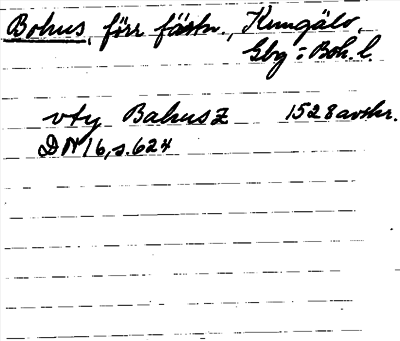 Bohus, förr fästn., Kungälv,
Gbg: Boh. l.
vty Bahusz 1528 avskr.
DN 16, s. 624